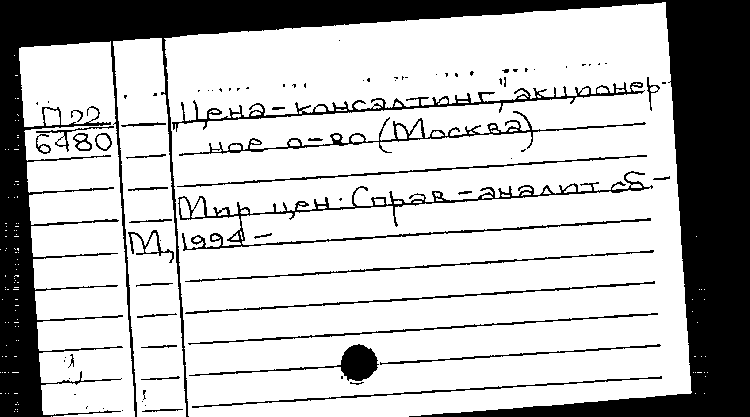 П22
6480
„Цена-консалтинг", акционер-
ное о-во (Москва)
Мир цен. Справ-аналит сб.-
М., 1994-